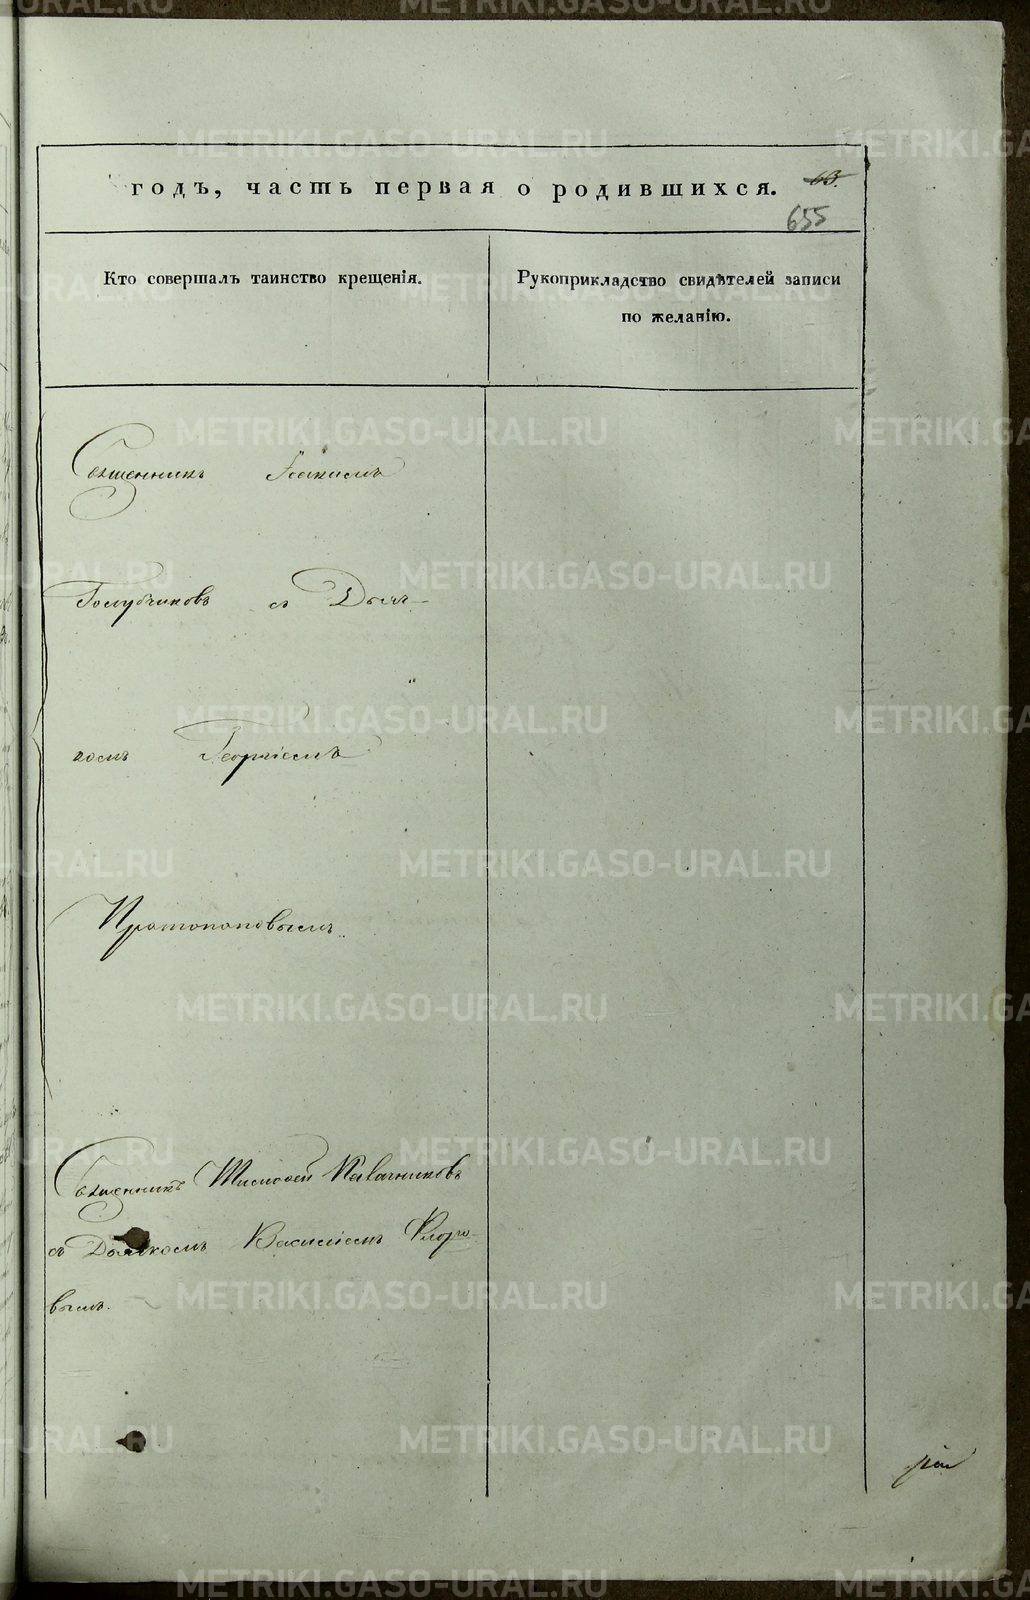 годъ, часть первая о родившихся. 63.
655
Кто совершалъ таинство крещенія.
Рукоприкладство свидѣтелей записи
по желанію.
Священникъ
Голубчиковъ съ Дьяч-
комъ Георгіемъ
Протопоповымъ.
Священникъ Тимофей Калачниковъ
съ Дьячкомъ Василіемъ Флоро-
вымъ.
METRIKI.GASO-URAL.RU